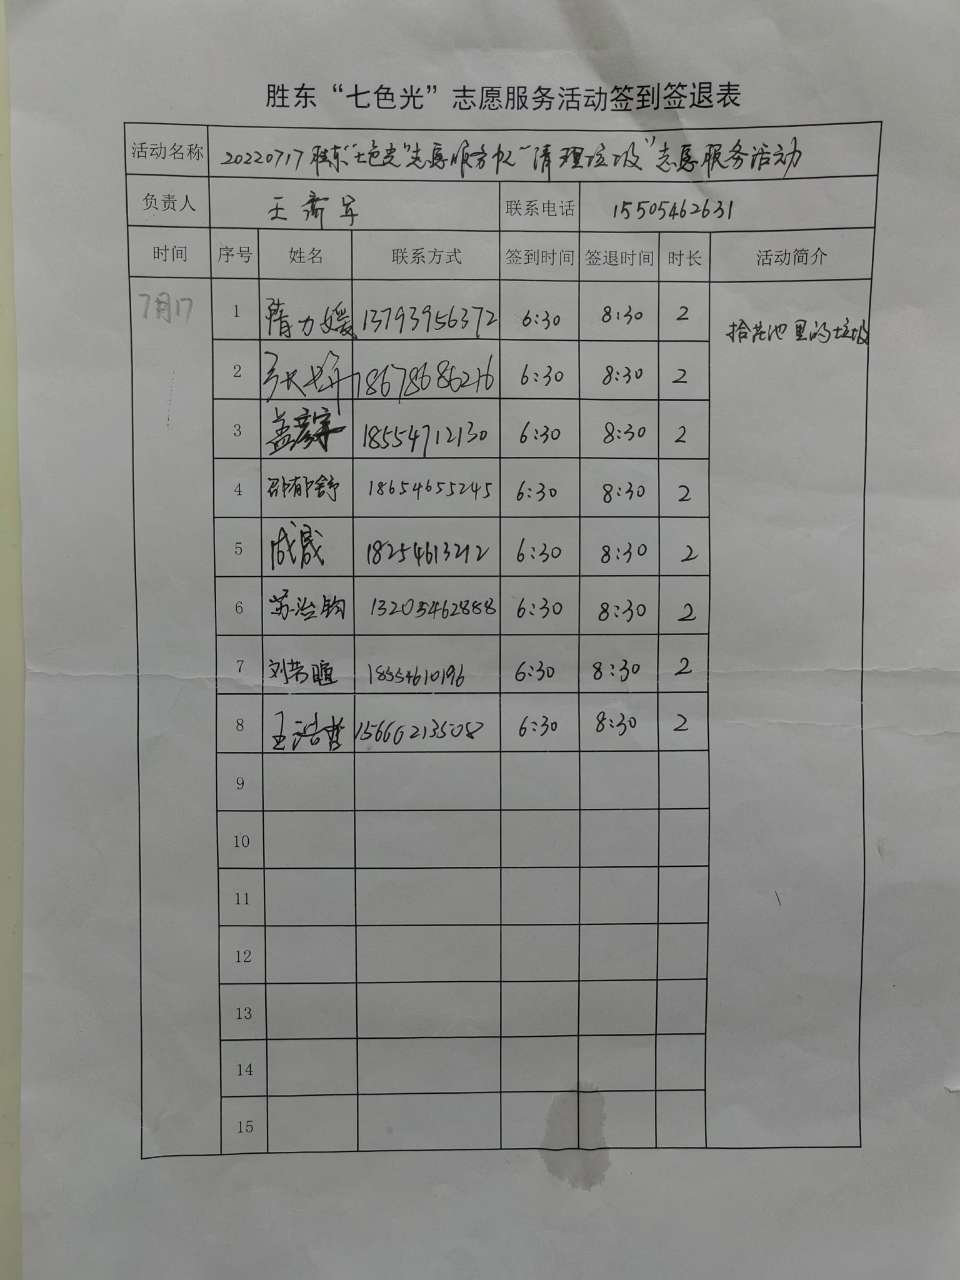 胜东“七色光”志愿服务活动签到签退表
活动名称 20220717胜东“七色光”志愿服务队“清理垃圾”志愿服务活动
负责人 王 军 联系电话 15505462631
时间 序号 姓名 联系方式 签到时间 签退时间 时长 活动简介
7月17 1 隋力媛 13793956372 6:30 8:30 2 拾花池里的垃圾
2 18678686216 6:30 8:30 2
3 孟彦宇 18554712130 6:30 8:30 2
4 邵郁舒 18654655245 6:30 8:30 2
5 成晟 18254613212 6:30 8:30 2
6 苏治钧 13205462888 6:30 8:30 2
7 刘 18554610196 6:30 8:30 2
8 王浩哲 15666213508 6:30 8:30 2
9
10
11
12
13
14
15